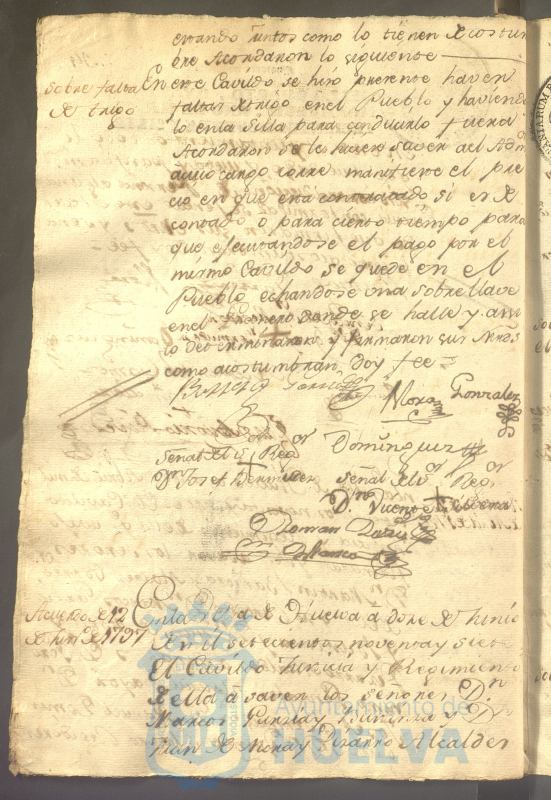 estando juntos como lo tienen de costum
bre Acordaron lo siguiente
Sobre falta
de trigo
En este Cavildo se hizo presente haver
falta de trigo en el Pueblo y haviendo
lo en la Silla para conducirlo fuera
Acordaron se le hiciese saver al Adm
a cuio cargo corre mantiene el pre
cio en que esta contratado si es de
contado o para cierto tiempo para
que efectuandose el pago por el
mismo Cavildo se quede en el
Pueblo echandose una sobre llave
en el Granero donde se halle y asi
lo determinaron y firmaron sus mrds
como acostumbran, doy fee
Mora
Gonzalez
Señal del Sor Regor
Dn Josef Bermudez
Dominguez
señal del Sor Regor
Dn Vicente
Roman
Blanco
Acuerdo de 12
de Junio de 1797
En la Villa de Huelva a doze de Junio
de mil setecientos noventa y siete
El Cavildo Justicia y Regimiento
de ella a saver los señores Dn
Marcos y Dn
Juan de Mora y Pizarro Alcaldes
Ayuntamiento de
HUELVA